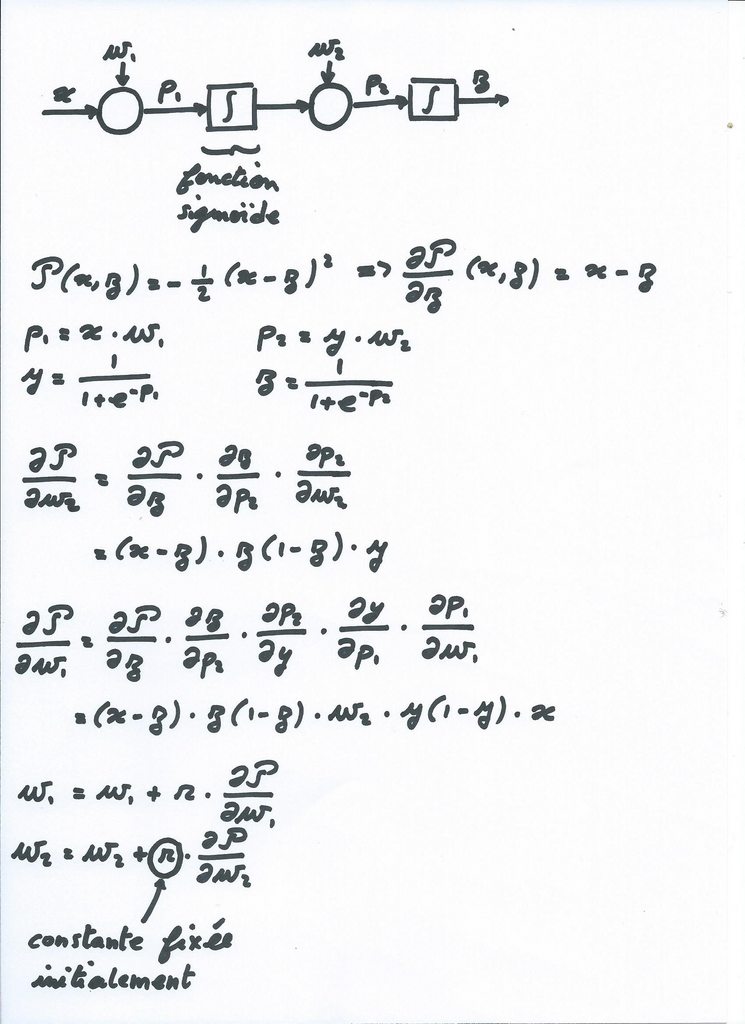 w₁ w₂
x p₁ ∫ p₂ ∫ z
fonction
sigmoïde
P(x,z) = -1/2 (x-z)² => ∂P/∂z (x,z) = x-z
p₁ = x · w₁ p₂ = y · w₂
y = 1/(1+e^-p₁) z = 1/(1+e^-p₂)
∂P/∂w₂ = ∂P/∂z · ∂z/∂p₂ · ∂p₂/∂w₂
= (x-z) · z(1-z) · y
∂P/∂w₁ = ∂P/∂z · ∂z/∂p₂ · ∂p₂/∂y · ∂y/∂p₁ · ∂p₁/∂w₁
= (x-z) · z(1-z) · w₂ · y(1-y) · x
w₁ = w₁ + r · ∂P/∂w₁
w₂ = w₂ + r · ∂P/∂w₂
constante fixée
initialement